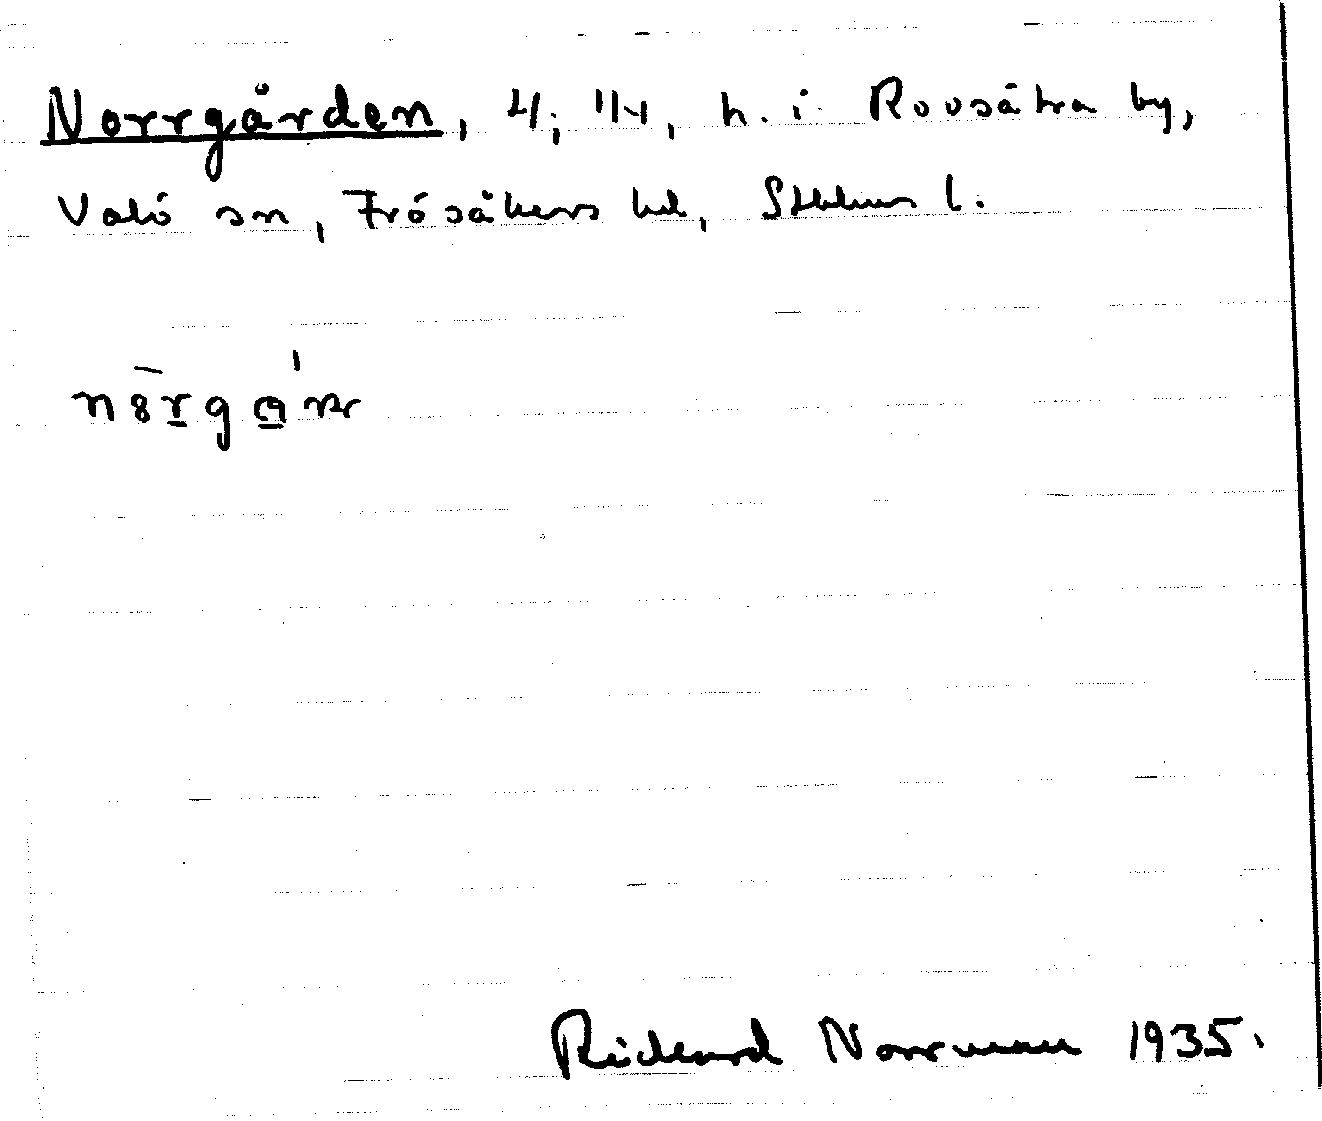 Norrgården, 4, 1/4, h. i Rovsätra by,
Valö sn, Frösåkers hd, Sthlms l.
Richard Norrman 1935.